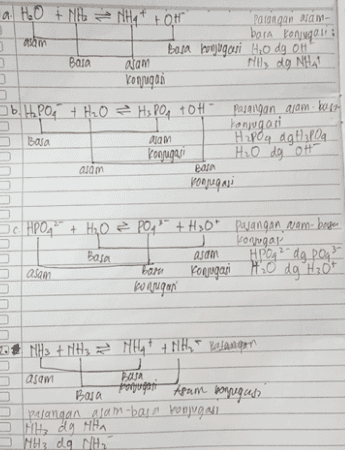 a. H₂O + NH₃ ⇌ NH₄⁺ + OH⁻ pasangan asam-
basa konjugasi:
asam Basa konjugasi H₂O dg OH⁻
Basa asam NH₃ dg NH₄⁺
konjugasi
b. H₂PO₄⁻ + H₂O ⇌ H₃PO₄ + OH⁻ pasangan asam-basa
konjugasi
Basa asam H₂PO₄ dg H₃PO₄
konjugasi H₂O dg OH⁻
asam Basa
konjugasi
c. HPO₄²⁻ + H₂O ⇌ PO₄³⁻ + H₃O⁺ pasangan asam-basa
konjugasi
Basa asam HPO₄²⁻ dg PO₄³⁻
asam Basa konjugasi H₂O dg H₃O⁺
konjugasi
2. NH₃ + NH₃ ⇌ NH₄⁺ + NH₂⁻
asam Basa
Basa konjugasi Asam konjugasi
pasangan asam-basa konjugasi
NH₃ dg NH₄
NH₃ dg NH₂⁻